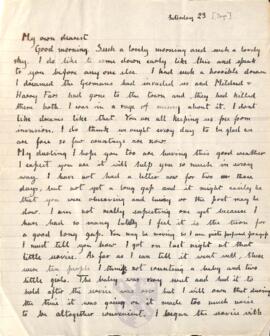 Saturday 23
My own dearest
Good morning. Such a lovely morning and such a lovely
sky. I do like to come down early like this and speak
to you before any one else. I had such a horrible dream
I dreamed the Germans had invaded us and Mildred &
Harry Fars had gone to the town and they had killed
them both. I was in a rage of misery about it. I don't
like dreams like that. You are all keeping us free from
invasion. I do think we ought every day to be glad we
are free so few countries are now.
My darling I hope you too are having this good weather
I expect you are it will help you so much in every
way. I have not had a letter now for two or three
days, but not yet a long gap and it might easily be
that you were observing and busy or the post may be
slow. I was not really expecting one yet because I
have had so many lately I feel it is the time for
a good long gap. You may be moving so I am quite prepared for a gap
I must tell you how I got on last night at that
little service. As far as I can tell it went well. There
were ten people I think not counting a baby and two
little girls. The baby was very sweet and I had it to
hold after the service was over but I will own that during
the time it was going on it made too much noise
to be altogether convenient. I began the service with